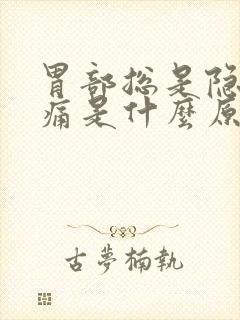 胃部总是隐
痛是什麼原
古夢楠執